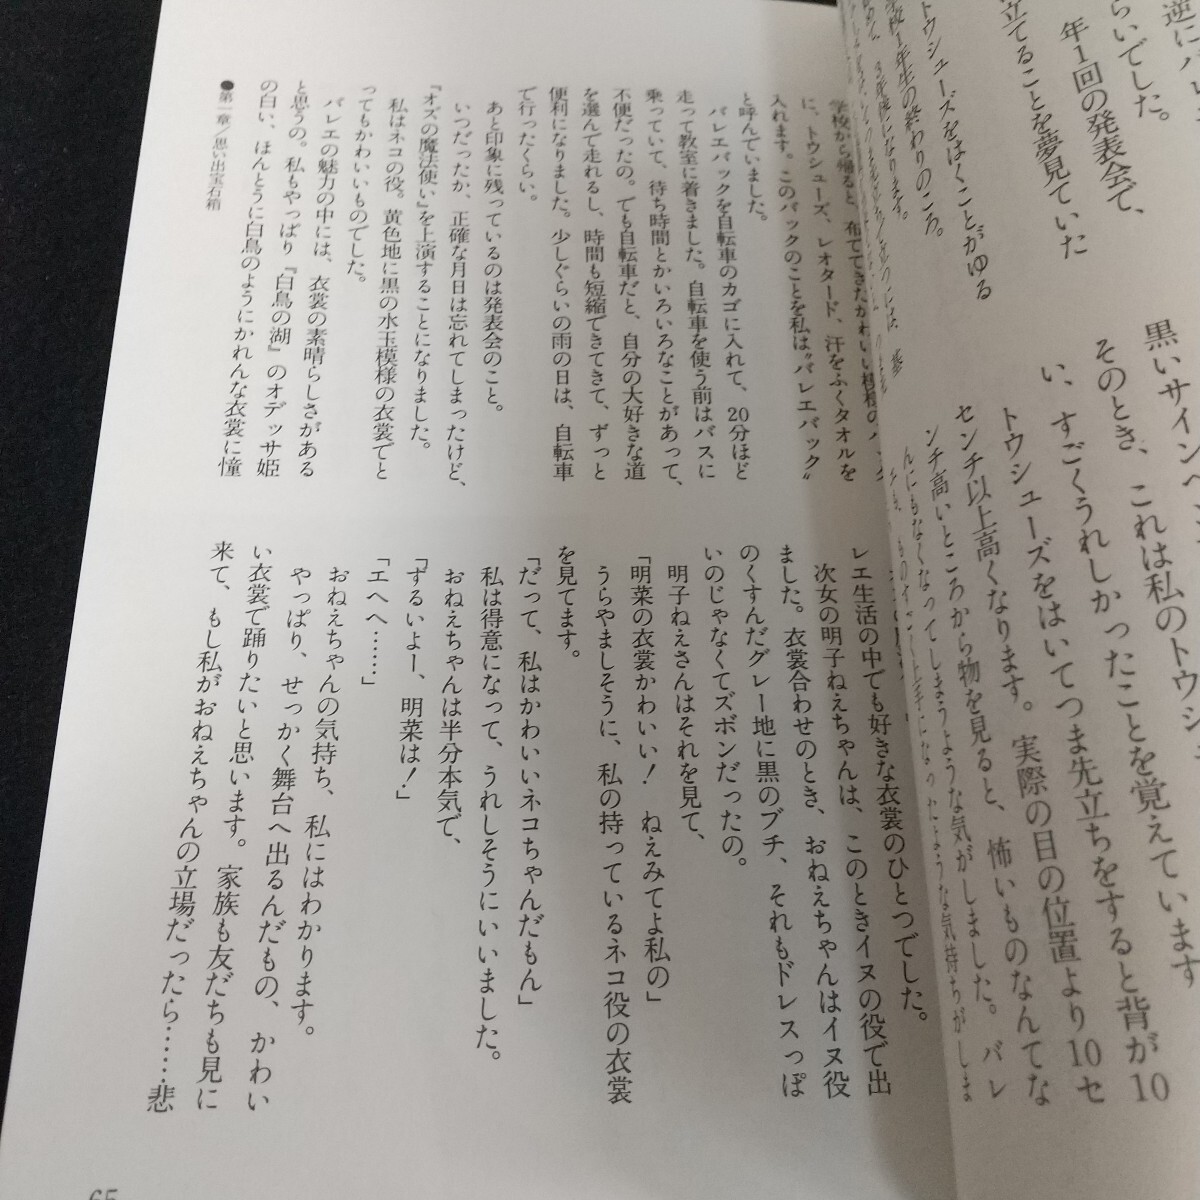 逆にバレ
らいでした。
年1回の発表会で、
立てることを夢見ていた
トウシューズをはくことがゆる
学校1年生の終わりのころ。
黒いサインペン
そのとき、これは私のトウシュー
い、すごくうれしかったことを覚えています
トウシューズをはいてつま先立ちをすると背が10
センチ以上高くなります。実際の目の位置より10セ
ンチ高いところから物を見ると、怖いものなんてな
んにもなくなってしまうような気がしました。バレ
学校から帰ると、布でできたかわいい模様のバック
に、トウシューズ、レオタード、汗をふくタオルを
入れます。このバックのことを私は〝バレエバック〟
と呼んでいました。
バレエバックを自転車のカゴに入れて、20分ほど
走って教室に着きました。自転車を使う前はバスに
乗っていて、待ち時間とかいろいろなことがあって、
不便だったの。でも自転車だと、自分の大好きな道
を選んで走れるし、時間も短縮できてきて、ずっと
便利になりました。少しぐらいの雨の日は、自転車
で行ったくらい。
あと印象に残っているのは発表会のこと。
いつだったか、正確な月日は忘れてしまったけど、
『オズの魔法使い』を上演することになりました。
私はネコの役。黄色地に黒の水玉模様の衣裳でと
ってもかわいいものでした。
バレエの魅力の中には、衣裳の素晴らしさがある
と思うの。私もやっぱり『白鳥の湖』のオデッサ姫
の白い、ほんとうに白鳥のようにかれんな衣裳に憧
●第一章／思い出宝石箱
レエ生活の中でも好きな衣裳のひとつでした。
次女の明子ねえちゃんは、このときイヌの役で出
ました。衣裳合わせのとき、おねえちゃんはイヌ役
のくすんだグレー地に黒のブチ、それもドレスっぽ
いのじゃなくてズボンだったの。
明子ねえさんはそれを見て、
「明菜の衣裳かわいい！　ねえみてよ私の」
うらやましそうに、私の持っているネコ役の衣裳
を見てます。
「だって、私はかわいいネコちゃんだもん」
私は得意になって、うれしそうにいいました。
おねえちゃんは半分本気で、
「ずるいよー、明菜は！」
「エヘヘ……」
おねえちゃんの気持ち、私にはわかります。
やっぱり、せっかく舞台へ出るんだもの、かわい
い衣裳で踊りたいと思います。家族も友だちも見に
来て、もし私がおねえちゃんの立場だったら……悲
65